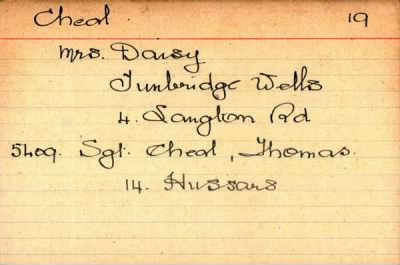 Cheal 19
Mrs. Daisy
Tunbridge Wells
4. Langton Rd
5409. Sgt. Cheal, Thomas.
14. Hussars